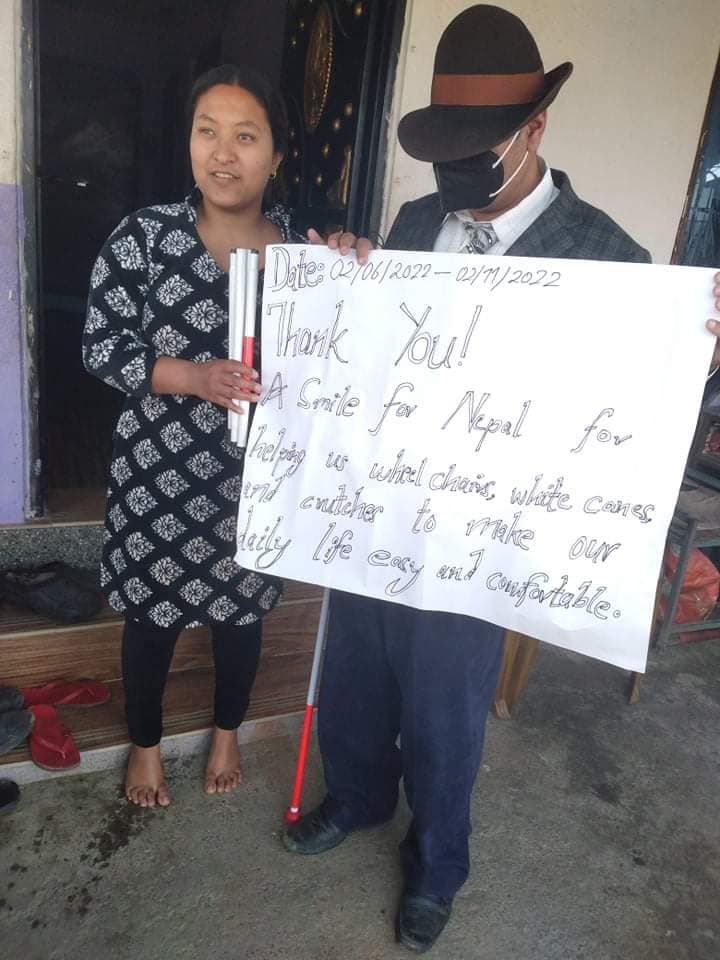 Date: 02/06/2022 – 02/11/2022
Thank You!
A Smile for Nepal for
helping us wheel chairs, white canes,
and crutches to make our
daily life easy and comfortable.